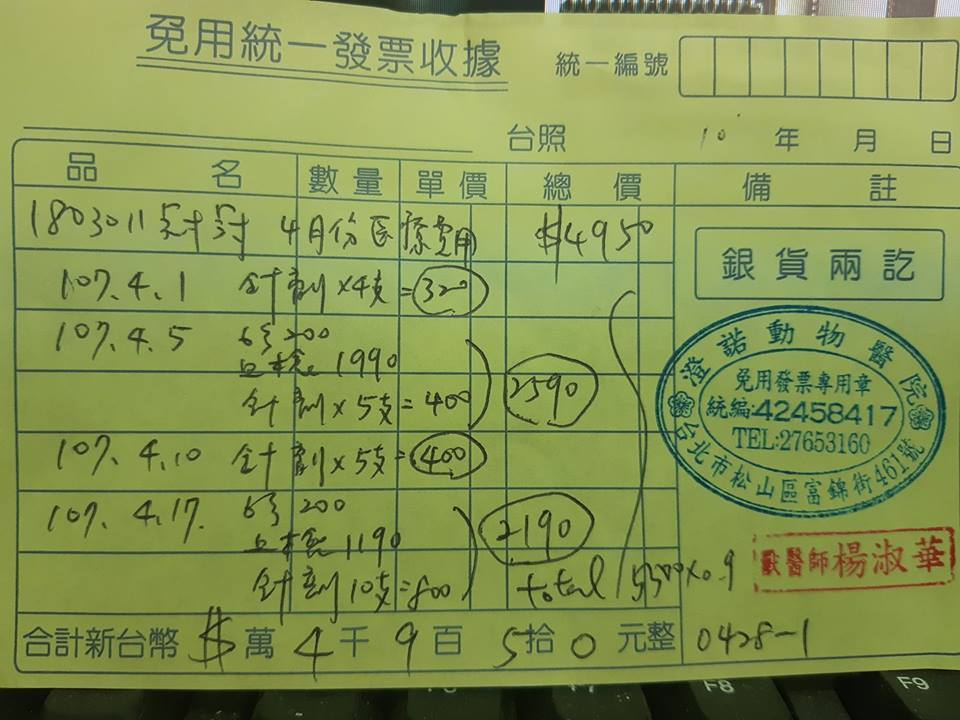 免用統一發票收據
統一編號
台照 年 月 日
品名 數量 單價 總價 備註
1803011 4月份医療費用 $4950
銀貨兩訖
107.4.1 針劑×4支=320
107.4.5 200
血檢 1990
針劑×5支=400 2590
107.4.10 針劑×5支=400
107.4.17. 200
血檢 1190 2190
針劑10支=800 total 5500×0.9
澄諾動物醫院
免用發票專用章
統編:42458417
TEL:27653160
台北市松山區富錦街461號
獸醫師楊淑華
合計新台幣 $ 萬 4 千 9 百 5 拾 0 元整 0428-1
F7 F8 F9